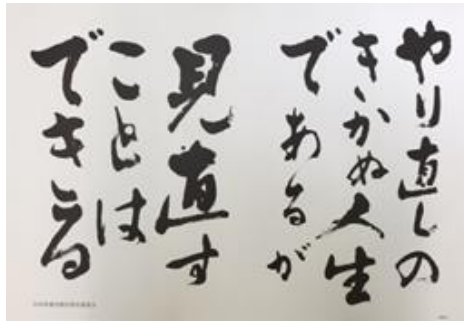 やり直しの
きかぬ人生
であるが
見直す
ことは
できる